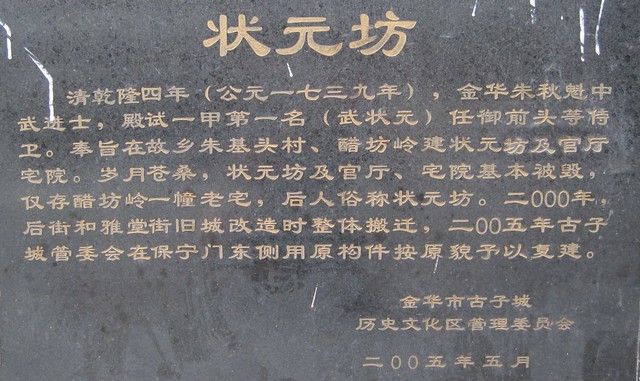 状元坊
清乾隆四年（公元一七三九年），金华朱秋魁中
武进士，殿试一甲第一名（武状元）任御前头等侍
卫。奉旨在故乡朱基头村、醋坊岭建状元坊及官厅
宅院。岁月苍桑，状元坊及官厅、宅院基本被毁，
仅存醋坊岭一幢老宅，后人俗称状元坊。二000年，
后街和雅堂街旧城改造时整体搬迁，二00五年古子
城管委会在保宁门东侧用原构件按原貌予以复建。
金华市古子城
历史文化区管理委员会
二00五年五月